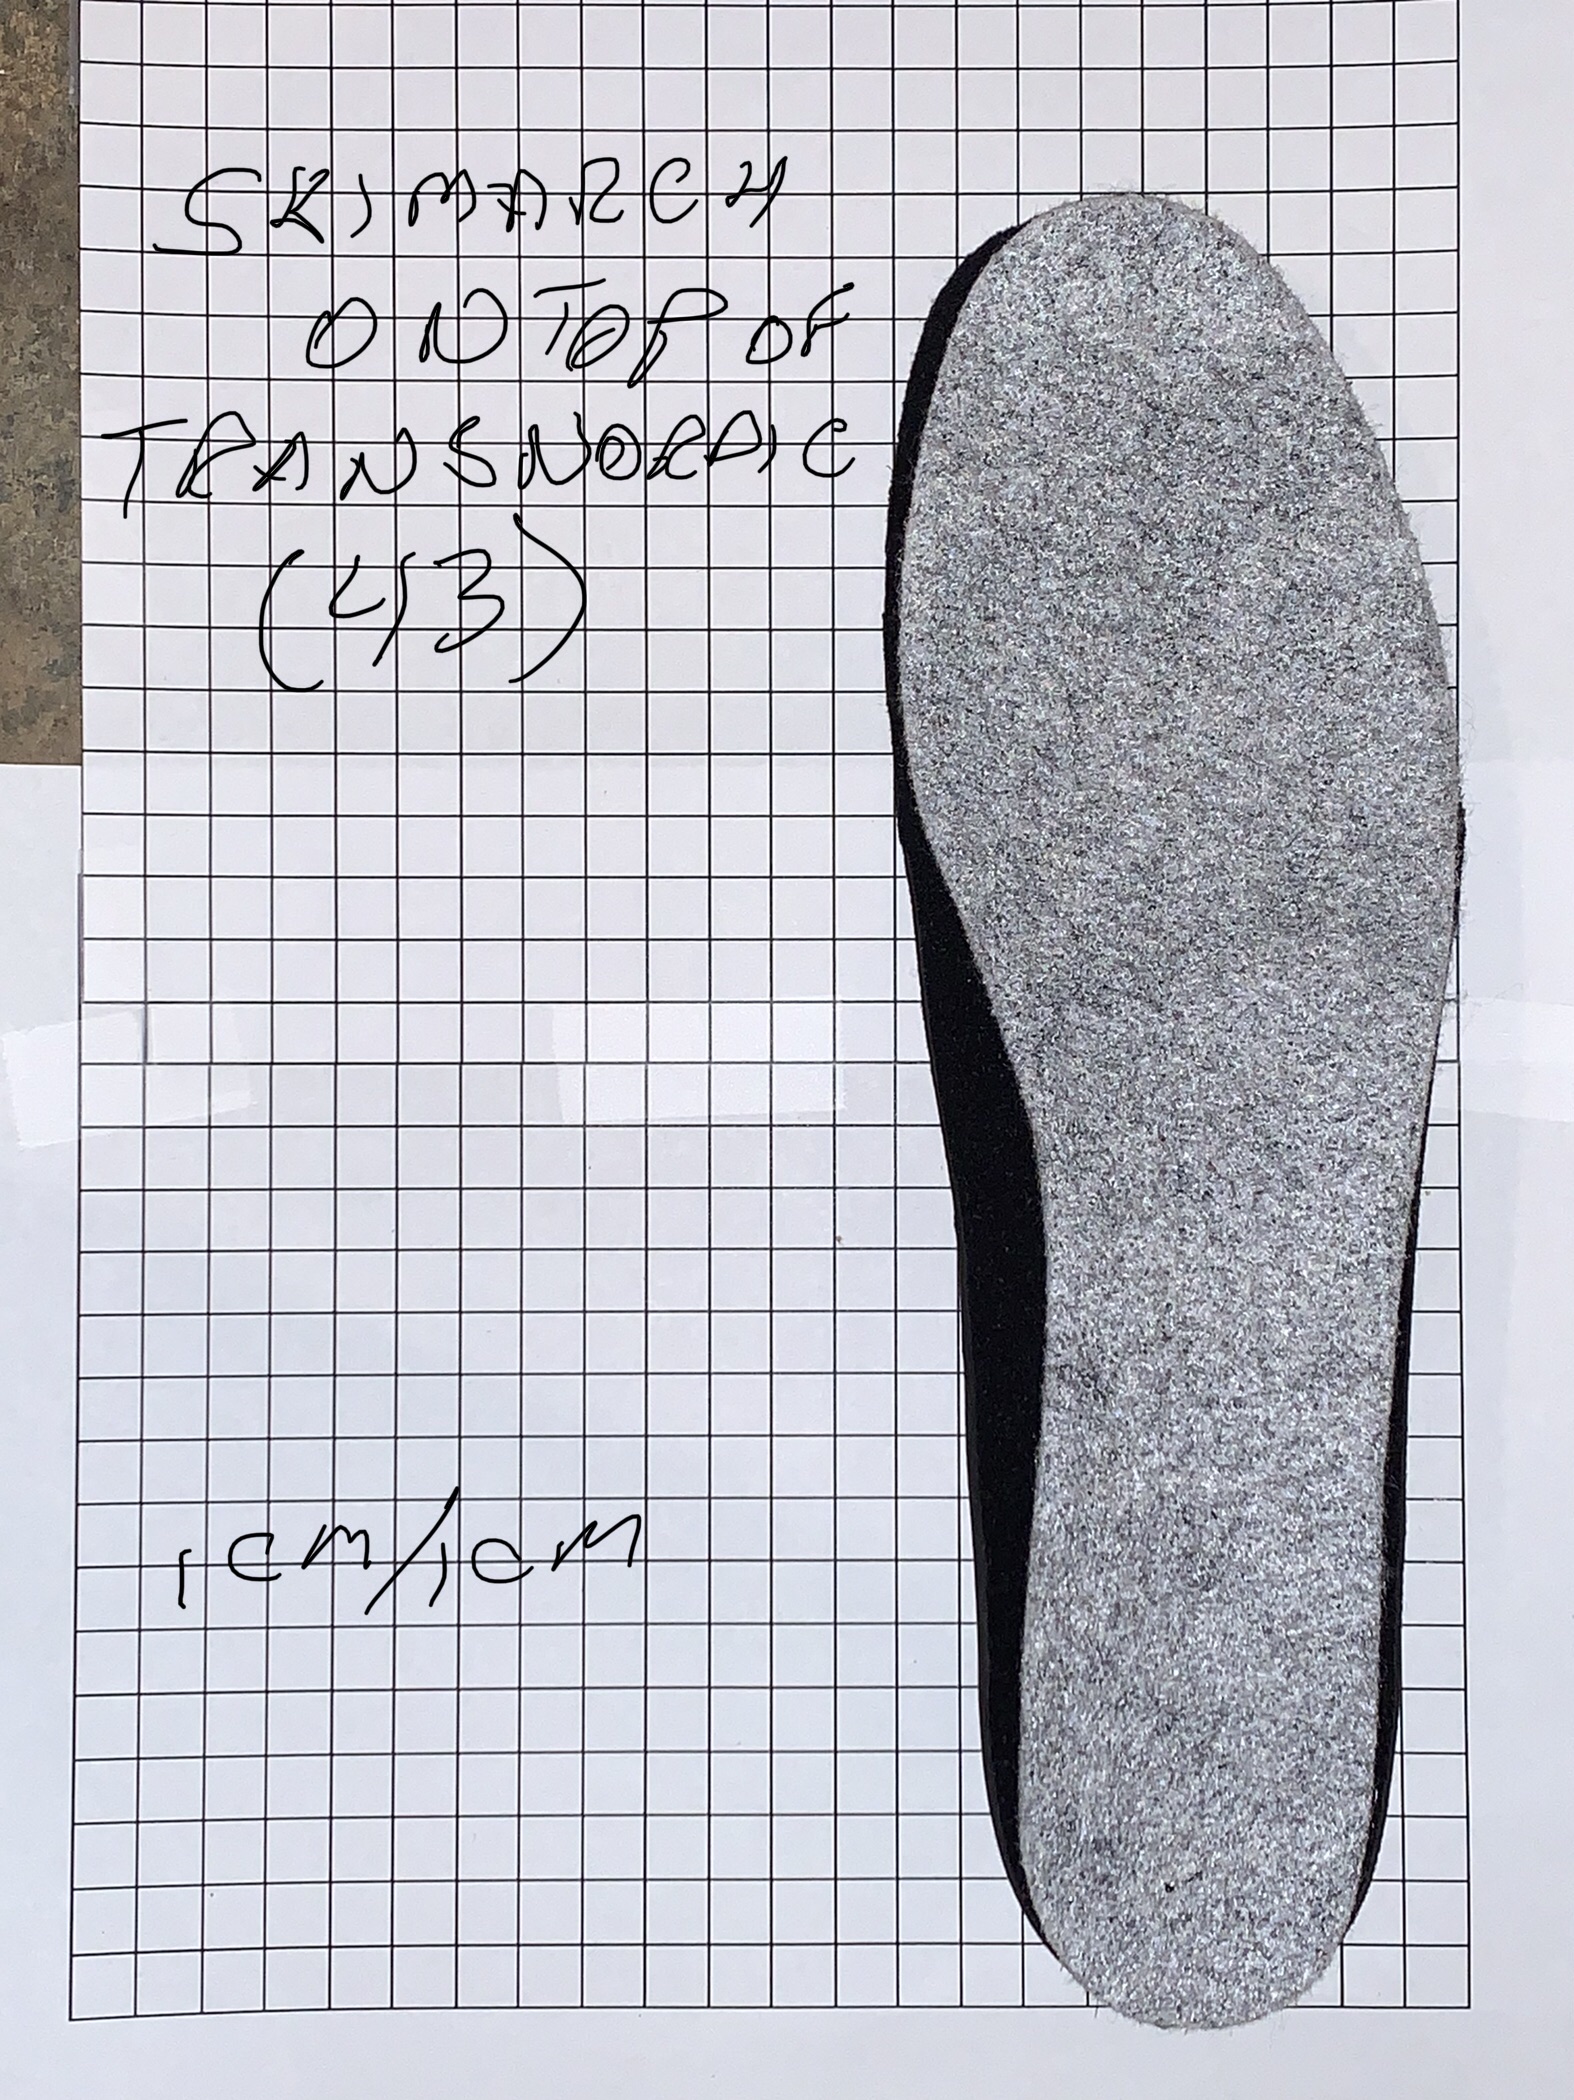 SKIMARCH
ON TOP OF
TRANSNORDIC
(43)
1CM/1CM